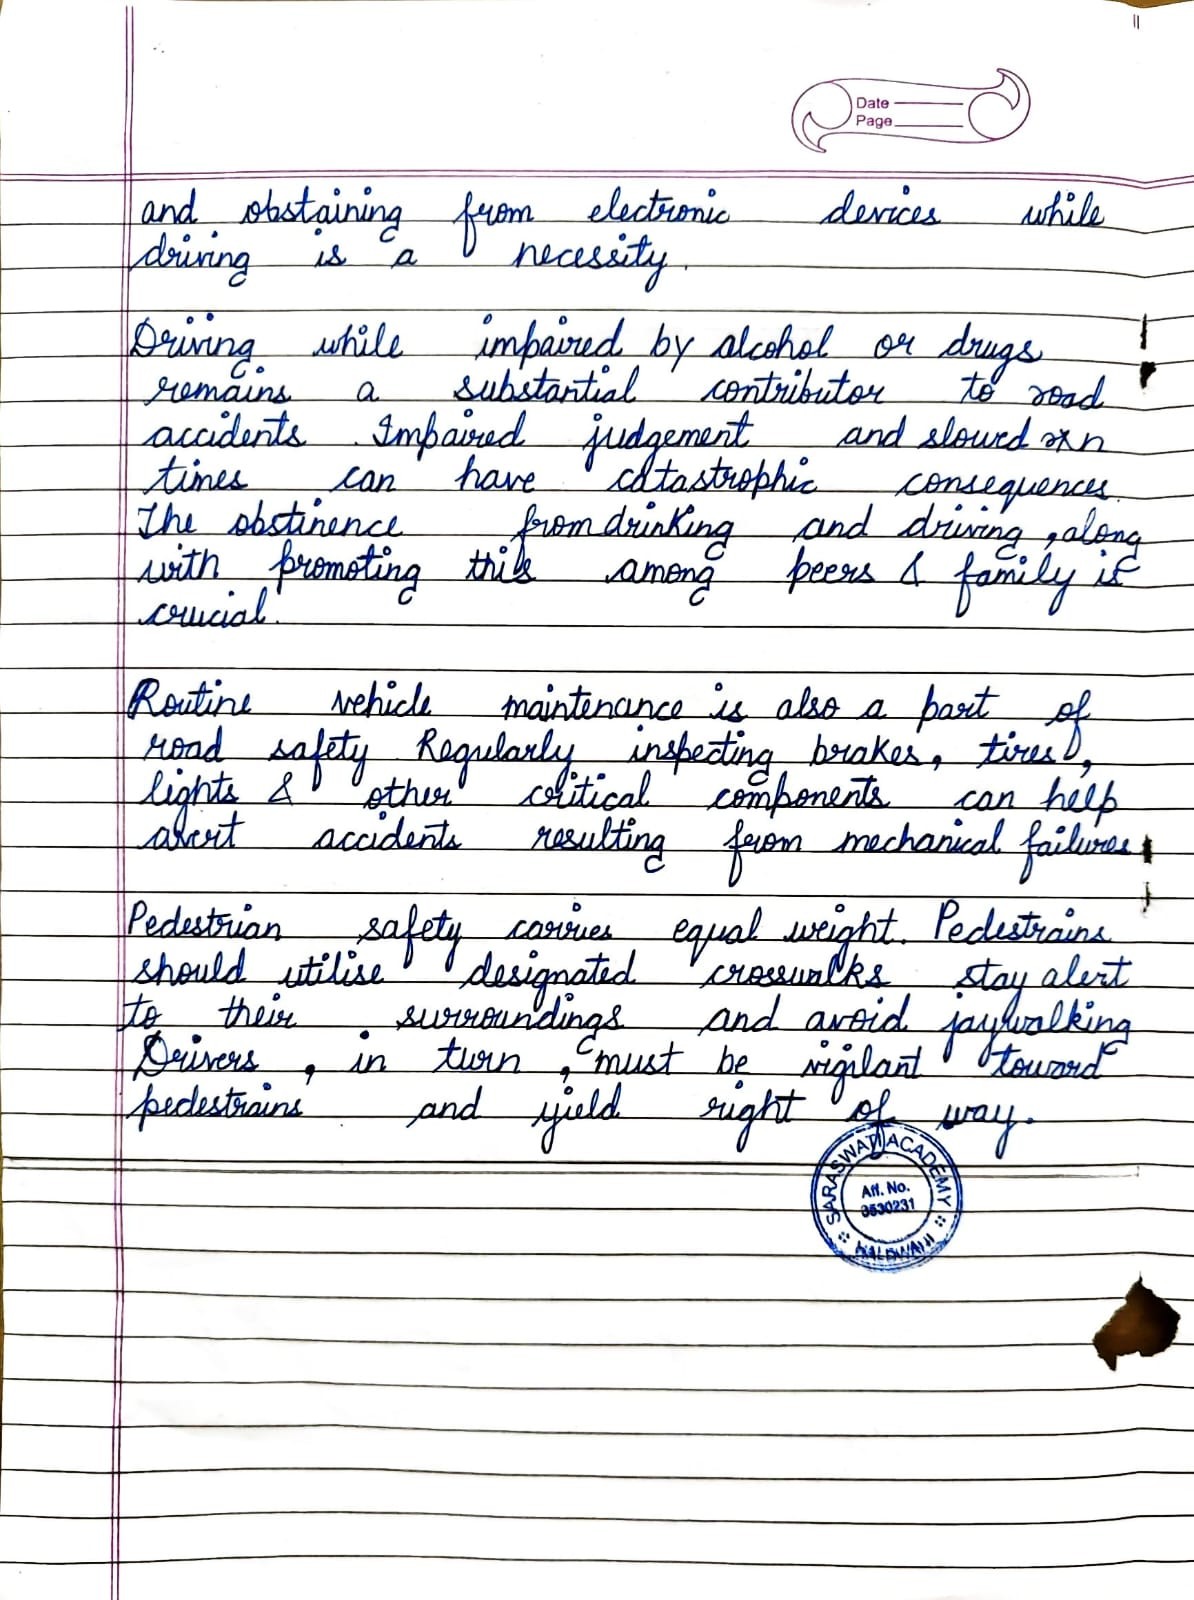 Date
Page
and obstaining from electronic devices while
driving is a necessity.
Driving while impaired by alcohol or drugs
remains a substantial contributor to road
accidents. Impaired judgement and slowed rxn
times can have catastrophic consequences.
The obstinence from drinking and driving, along
with promoting this among peers & family is
crucial.
Routine vehicle maintenance is also a part of
road safety Regularly inspecting brakes, tires,
lights & other critical components can help
avert accidents resulting from mechanical failures
Pedestrian safety carries equal weight. Pedestrains
should utilise designated crosswalks stay alert
to their surroundings and avoid jaywalking
Drivers, in turn, must be vigilant toward
pedestrains and yield right of way.
SARASWATI ACADEMY
Aff. No.
3530231
HALDWANI